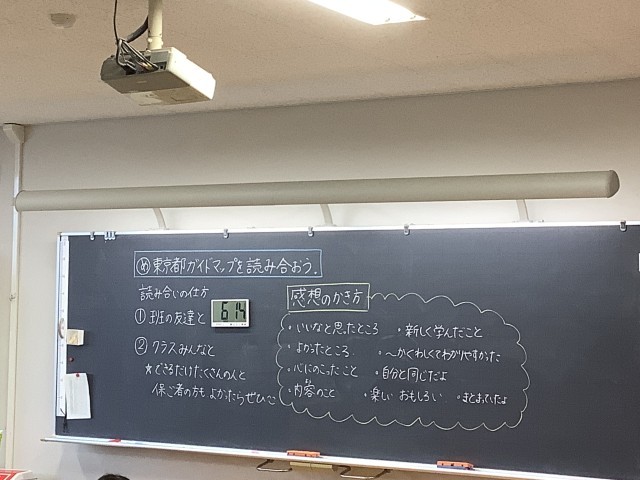 め 東京都ガイドマップを読み合おう。
読み合いの仕方
① 班の友達と
6 14
② クラスみんなと
★できるだけたくさんの人と
保ご者の方もよかったらぜひ
感想のかき方
・いいなと思ったところ ・新しく学んだこと
・よかったところ ・〜がくわしくてわかりやすかった
・心にのこったこと ・自分と同じだよ
・内容のこと ・楽しい おもしろい ・まとまっていたよ